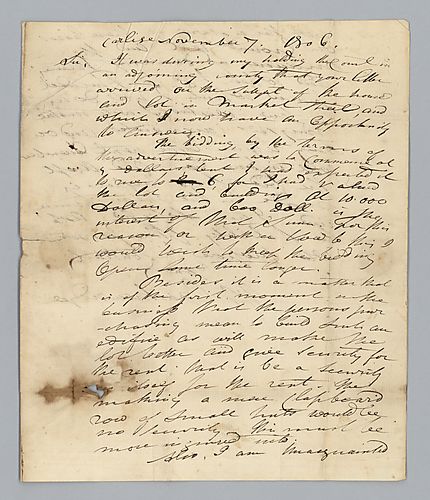 Carlise November 7, 1806.
Sir, It was during my holding the court in
an adjoining county that your letter
arrived on the subject of the house
and lot in Market Street, and
which I now have an opportunity
to answer.
The bidding by the terms of
the advertisement was to commence at
5 dollars but I had expected it
to rise to 6 for I had valued
the lot and buildings at 10.000
Dollars and 600 Doll. is the
interest of that sum. For this
reason
would wish to the bidding
open some time longer.
Besides it is a matter that
is of the first moment in the
business that the persons pur-
chasing mean to build such an
edifice as will make the
lot better and give security for
the rent. that is be a security
in itself for the rent. The
making a mere clapboard
row of small huts would be
no security. This must be
more inquired into.
Also, I am unacquainted